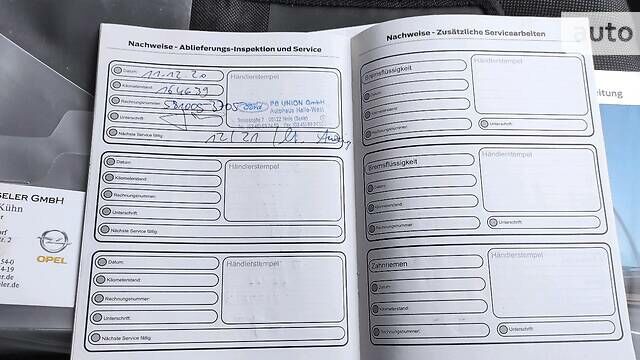 auto
Nachweise - Ablieferungs-Inspektion und Service
Datum: 11.12.20
Händlerstempel
Kilometerstand: 164639
Rechnungsnummer:
Ford PB UNION GmbH
Autohaus Halle-West
Unterschrift:
Nächste Service fällig 12/21
Datum:
Händlerstempel
Kilometerstand:
Rechnungsnummer:
Unterschrift:
Nächste Service fällig:
Datum:
Händlerstempel
Kilometerstand:
Rechnungsnummer:
Unterschrift:
Nächste Service fällig
Nachweise - Zusätzliche Servicearbeiten
Bremsflüssigkeit
Händlerstempel
Datum:
Kilometerstand:
Rechnungsnummer:
Unterschrift:
Bremsflüssigkeit
Händlerstempel
Datum:
Kilometerstand:
Rechnungsnummer
Unterschrift:
Zahnriemen
Händlerstempel
Datum:
Kilometerstand:
Rechnungsnummer:
Unterschrift:
eitung
SELER GMBH
Kühn
OPEL